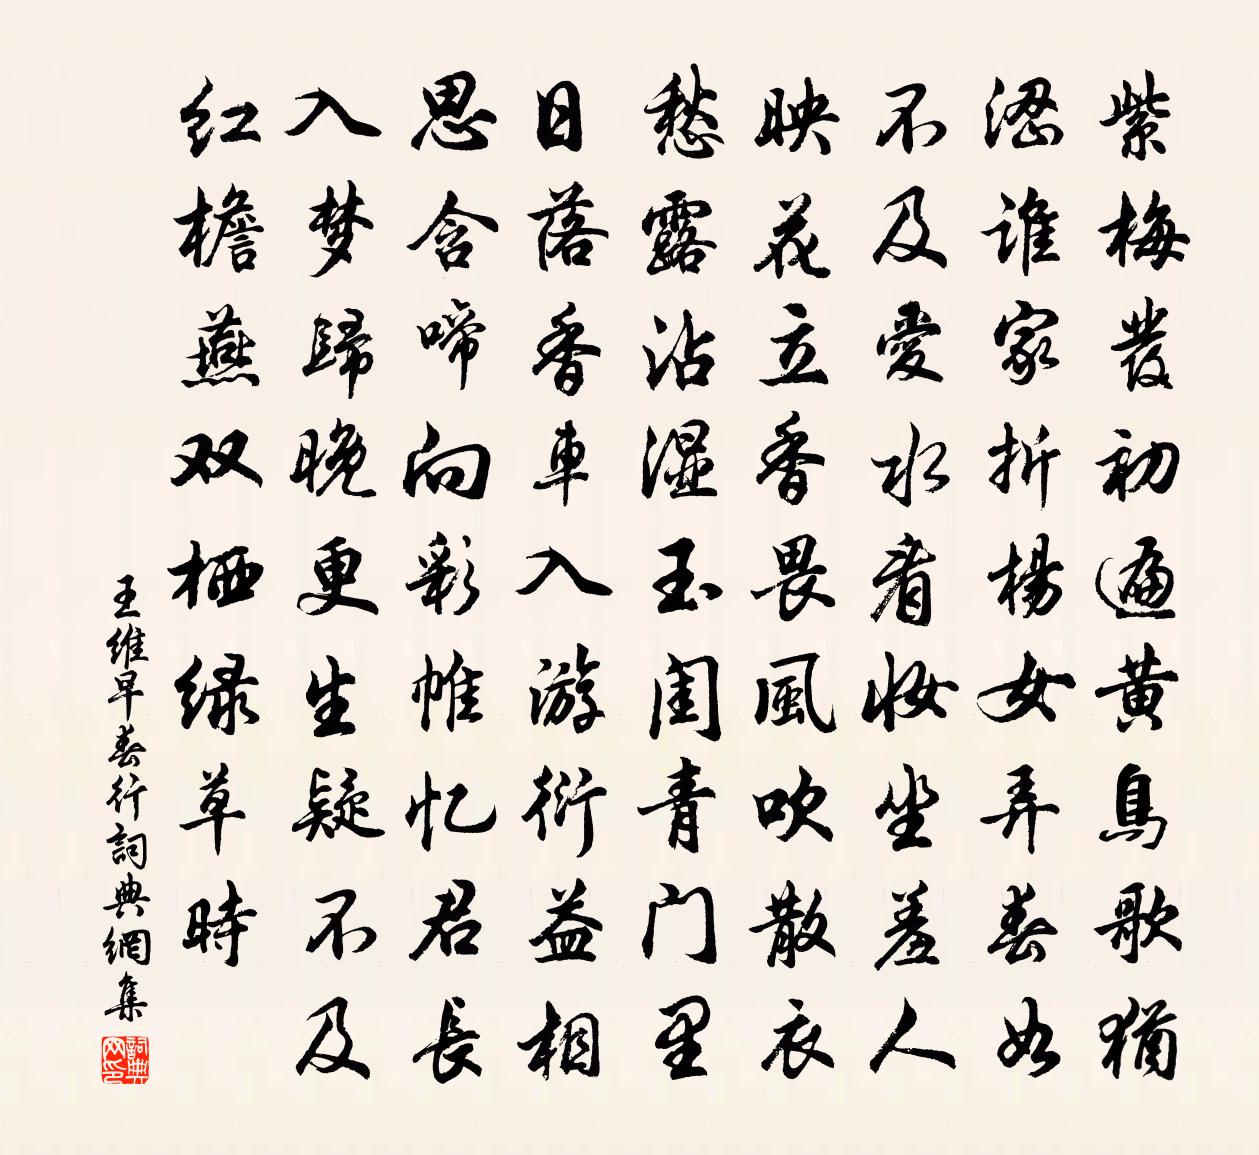 紫梅發初遍黄鳥歌猶
澀誰家折楊女弄春如
不及愛水看妝坐羞人
映花立香畏風吹散衣
愁露沾湿玉闺青门里
日落香車入游衍益相
思含啼向彩帷忆君長
入梦歸晚更生疑不及
红檐燕双栖绿草時
王维早春行詞典網集
詞典网印